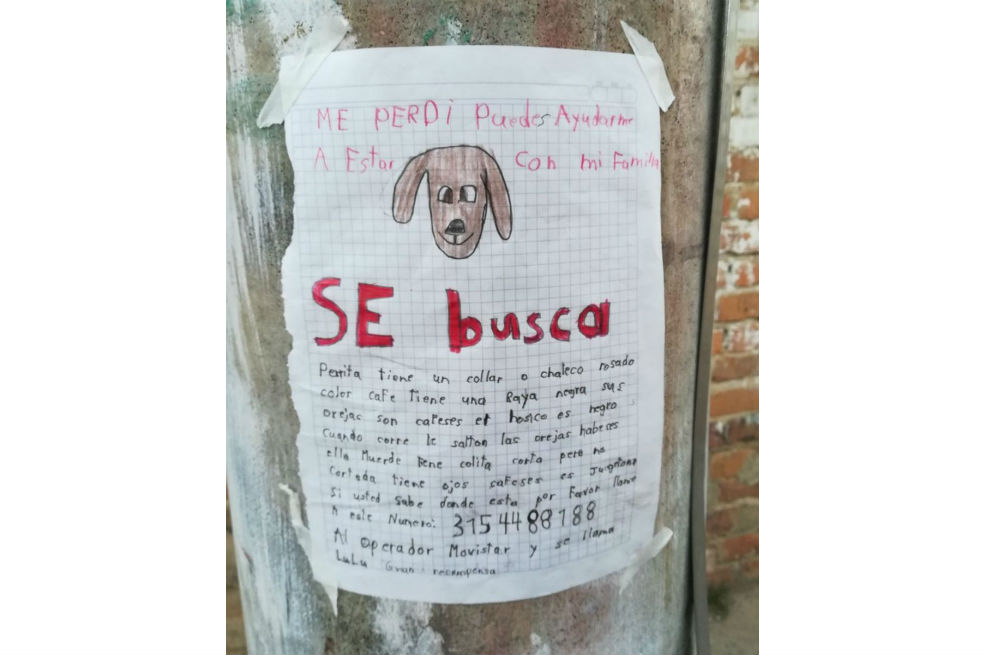 ME PERDI Puedes Ayudarme
A Estar Con mi Familia
SE busca
Perrita tiene un collar o chaleco rosado
color cafe tiene una Raya negra sus
orejas son cafeses el hosico es negro
Cuando corre le saltan las orejas habeses
ella Muerde tiene colita corta pero no
Cortada tiene ojos cafeses es Juigetona
Si usted sabe donde esta por Favor llame
A este Numero: 3154488788
Al operador Movistar y se llama
LuLu Gran recompensa